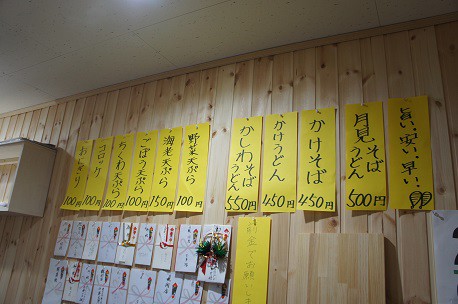 旨い、安い、早い、
月見そば
うどん
500円
かけそば
450円
かけうどん
450円
かしわそば
うどん
550円
野菜天ぷら
100円
海老天ぷら
150円
ごぼう天ぷら
100円
ちくわ天ぷら
100円
コロッケ
100円
おにぎり
100円